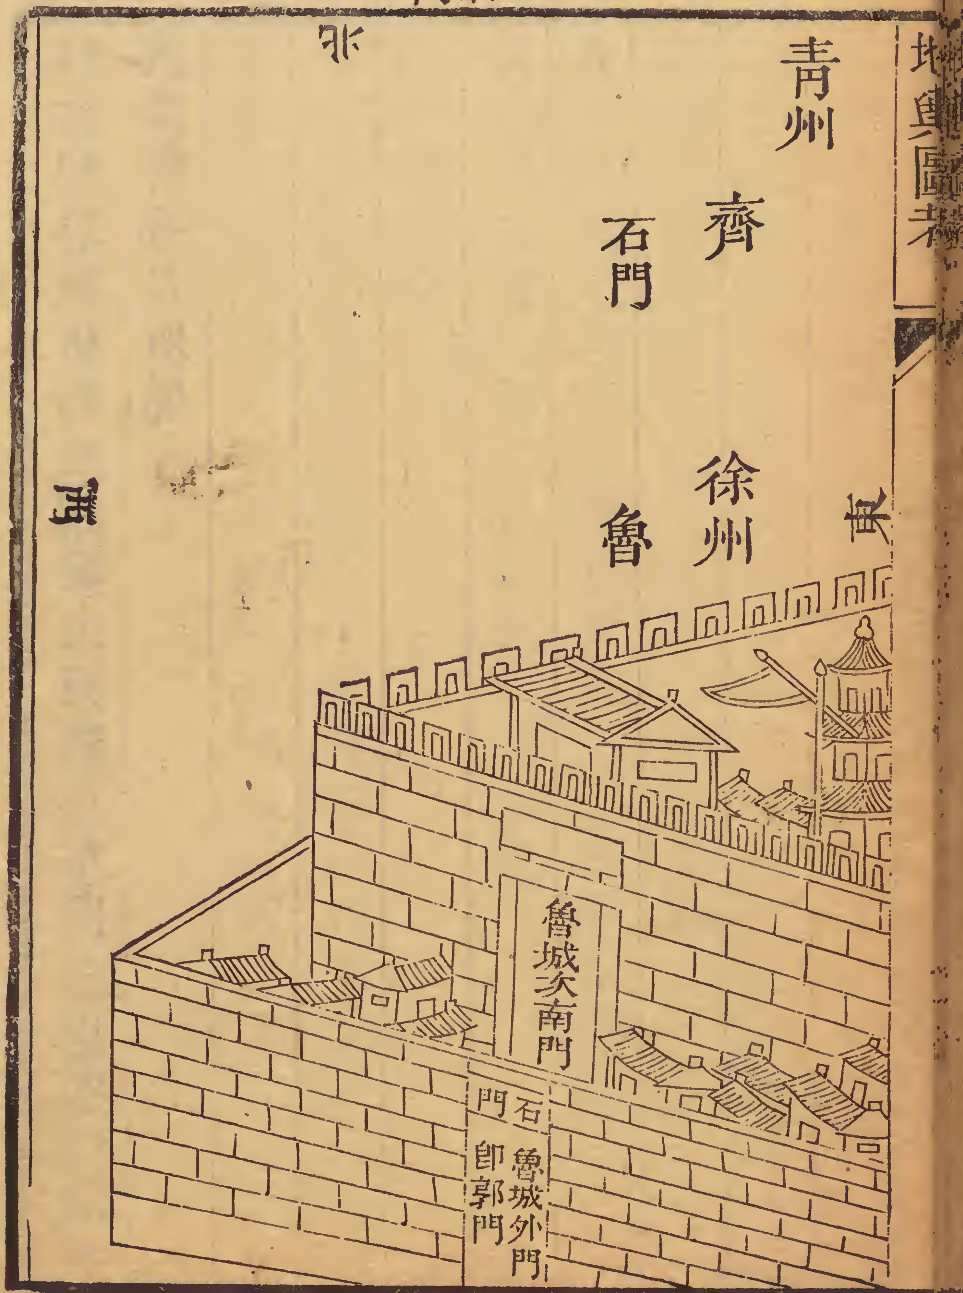 地輿圖考
北
青州
齊
石門
徐州
魯
東
西
魯城次南門
石門
魯城外門
卽郭門